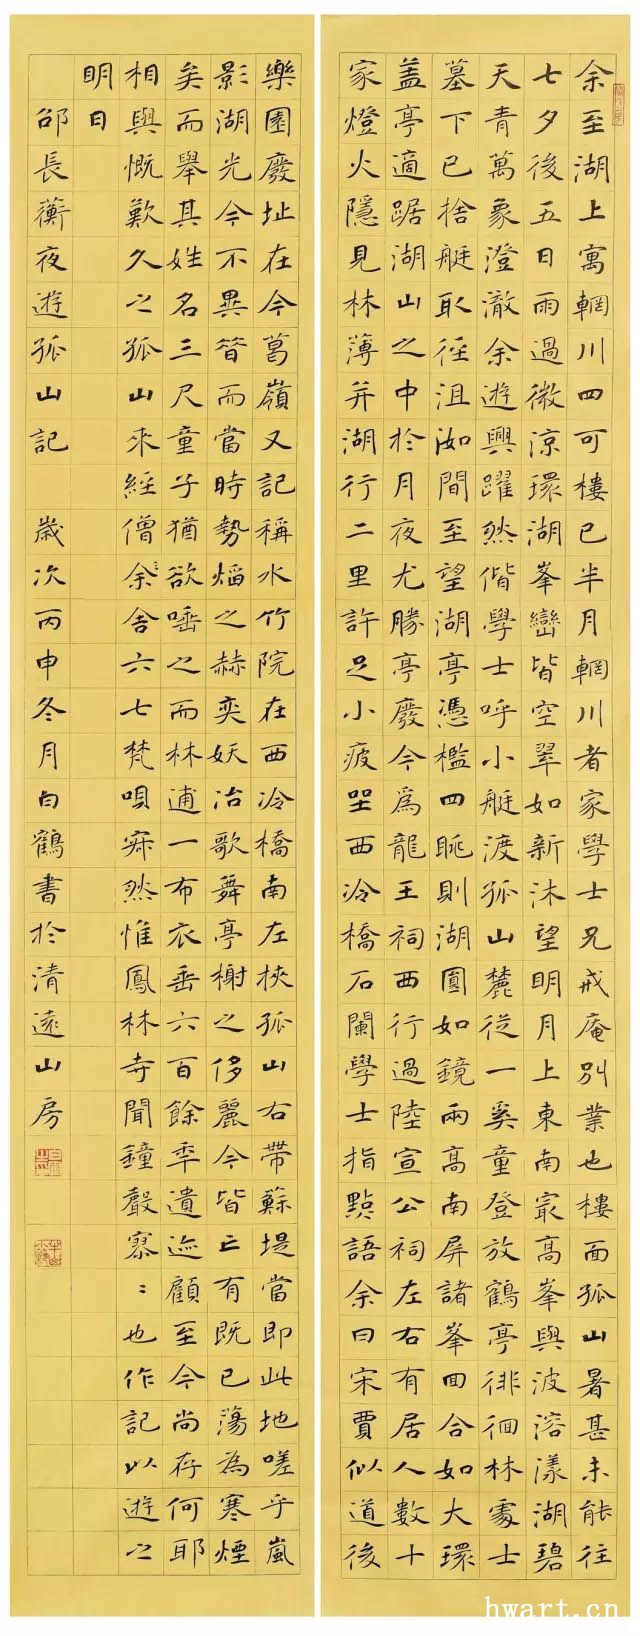 余至湖上寓輞川四可樓已半月輞川者家學士兄戒庵別業也樓面孤山暑甚未能往
七夕後五日雨過微涼環湖峯巒皆空翠如新沐望明月上東南最高峯與波溶漾湖碧
天青萬象澄澈余遊興躍然偕學士呼小艇渡孤山麓從一奚童登放鶴亭徘徊林處士
墓下已捨艇取徑沮洳間至望湖亭憑檻四眺則湖圓如鏡兩高南屏諸峯回合如大環
盖亭適踞湖山之中於月夜尤勝亭廢今為龍王祠西行過陸宣公祠左右有居人數十
家燈火隱見林薄并湖行二里許足小疲坐西泠橋石闌學士指點語余曰宋賈似道後
樂園廢址在今葛嶺又記稱水竹院在西泠橋南左挾孤山右帶蘇堤當即此地嗟乎嵐
影湖光今不異昔而當時勢焰之赫奕妖冶歌舞亭榭之侈麗今皆亡有既已蕩為寒煙
矣而舉其姓名三尺童子猶欲唾之而林逋一布衣垂六百餘年遺迹顧至今尚存何耶
相與慨歎久之孤山來經僧余舍六七梵唄寂然惟鳳林寺聞鐘聲寥〻也作記以遊之
明日
邵長蘅夜遊孤山記　歲次丙申冬月白鶴書於清遠山房
hwart.cn